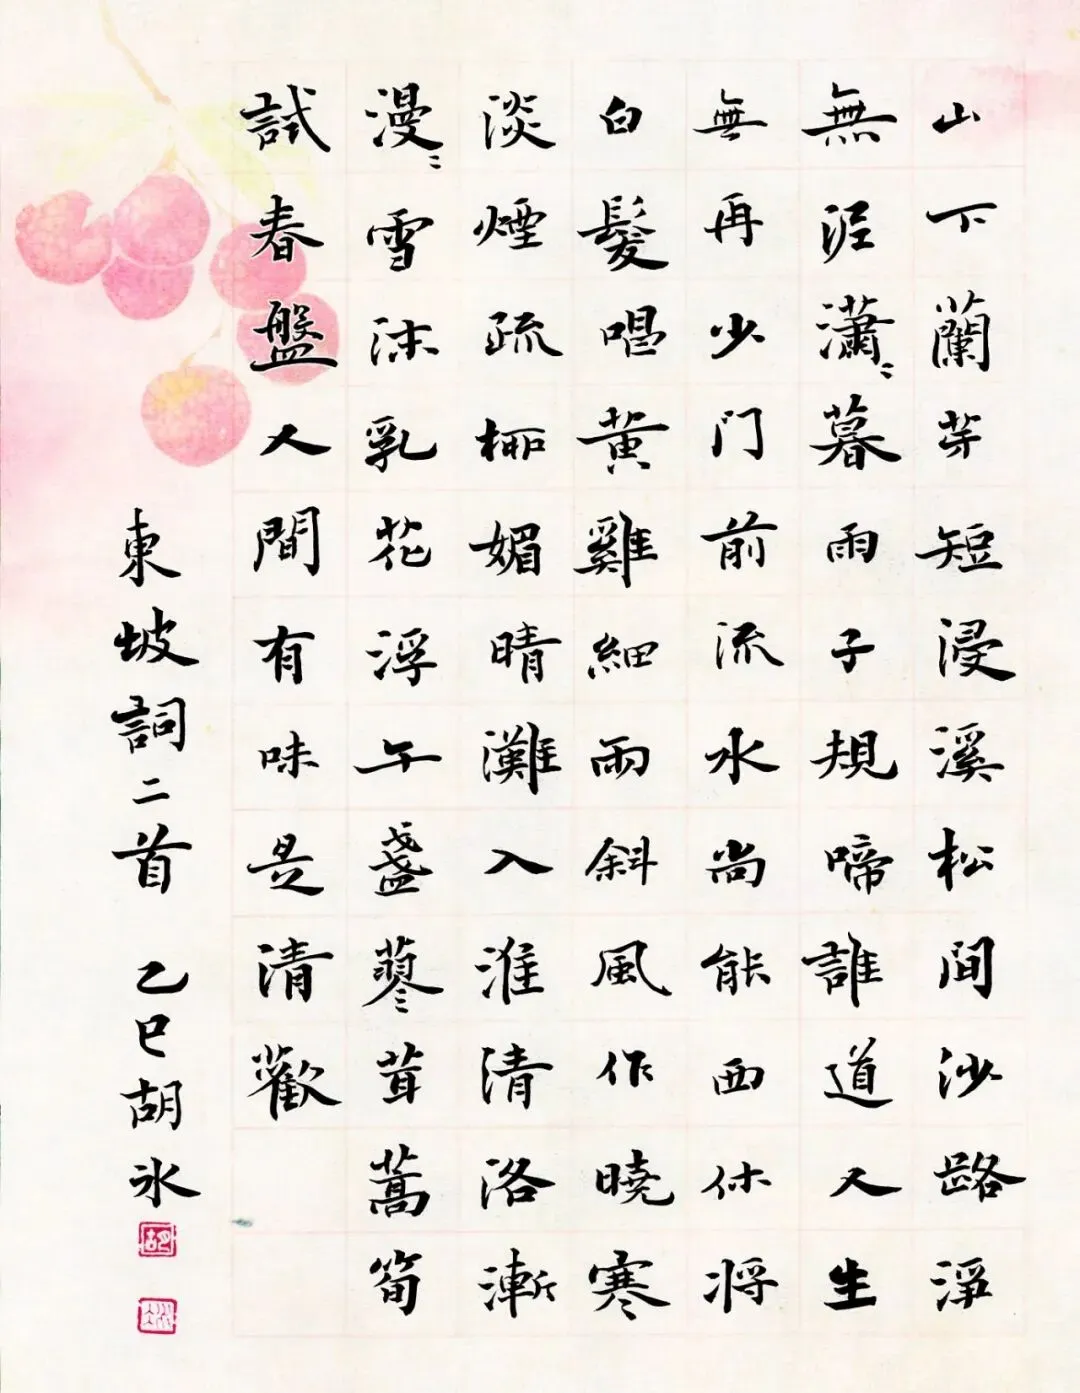 山下蘭芽短浸溪松間沙路淨
無泥瀟〻暮雨子規啼誰道人生
無再少门前流水尚能西休將
白髮唱黄雞細雨斜風作曉寒
淡煙疏柳媚晴灘入淮清洛漸
漫〻雪沫乳花浮午盞蓼茸蒿筍
試春盤人間有味是清歡
東坡詞二首 乙巳胡冰
胡
冰